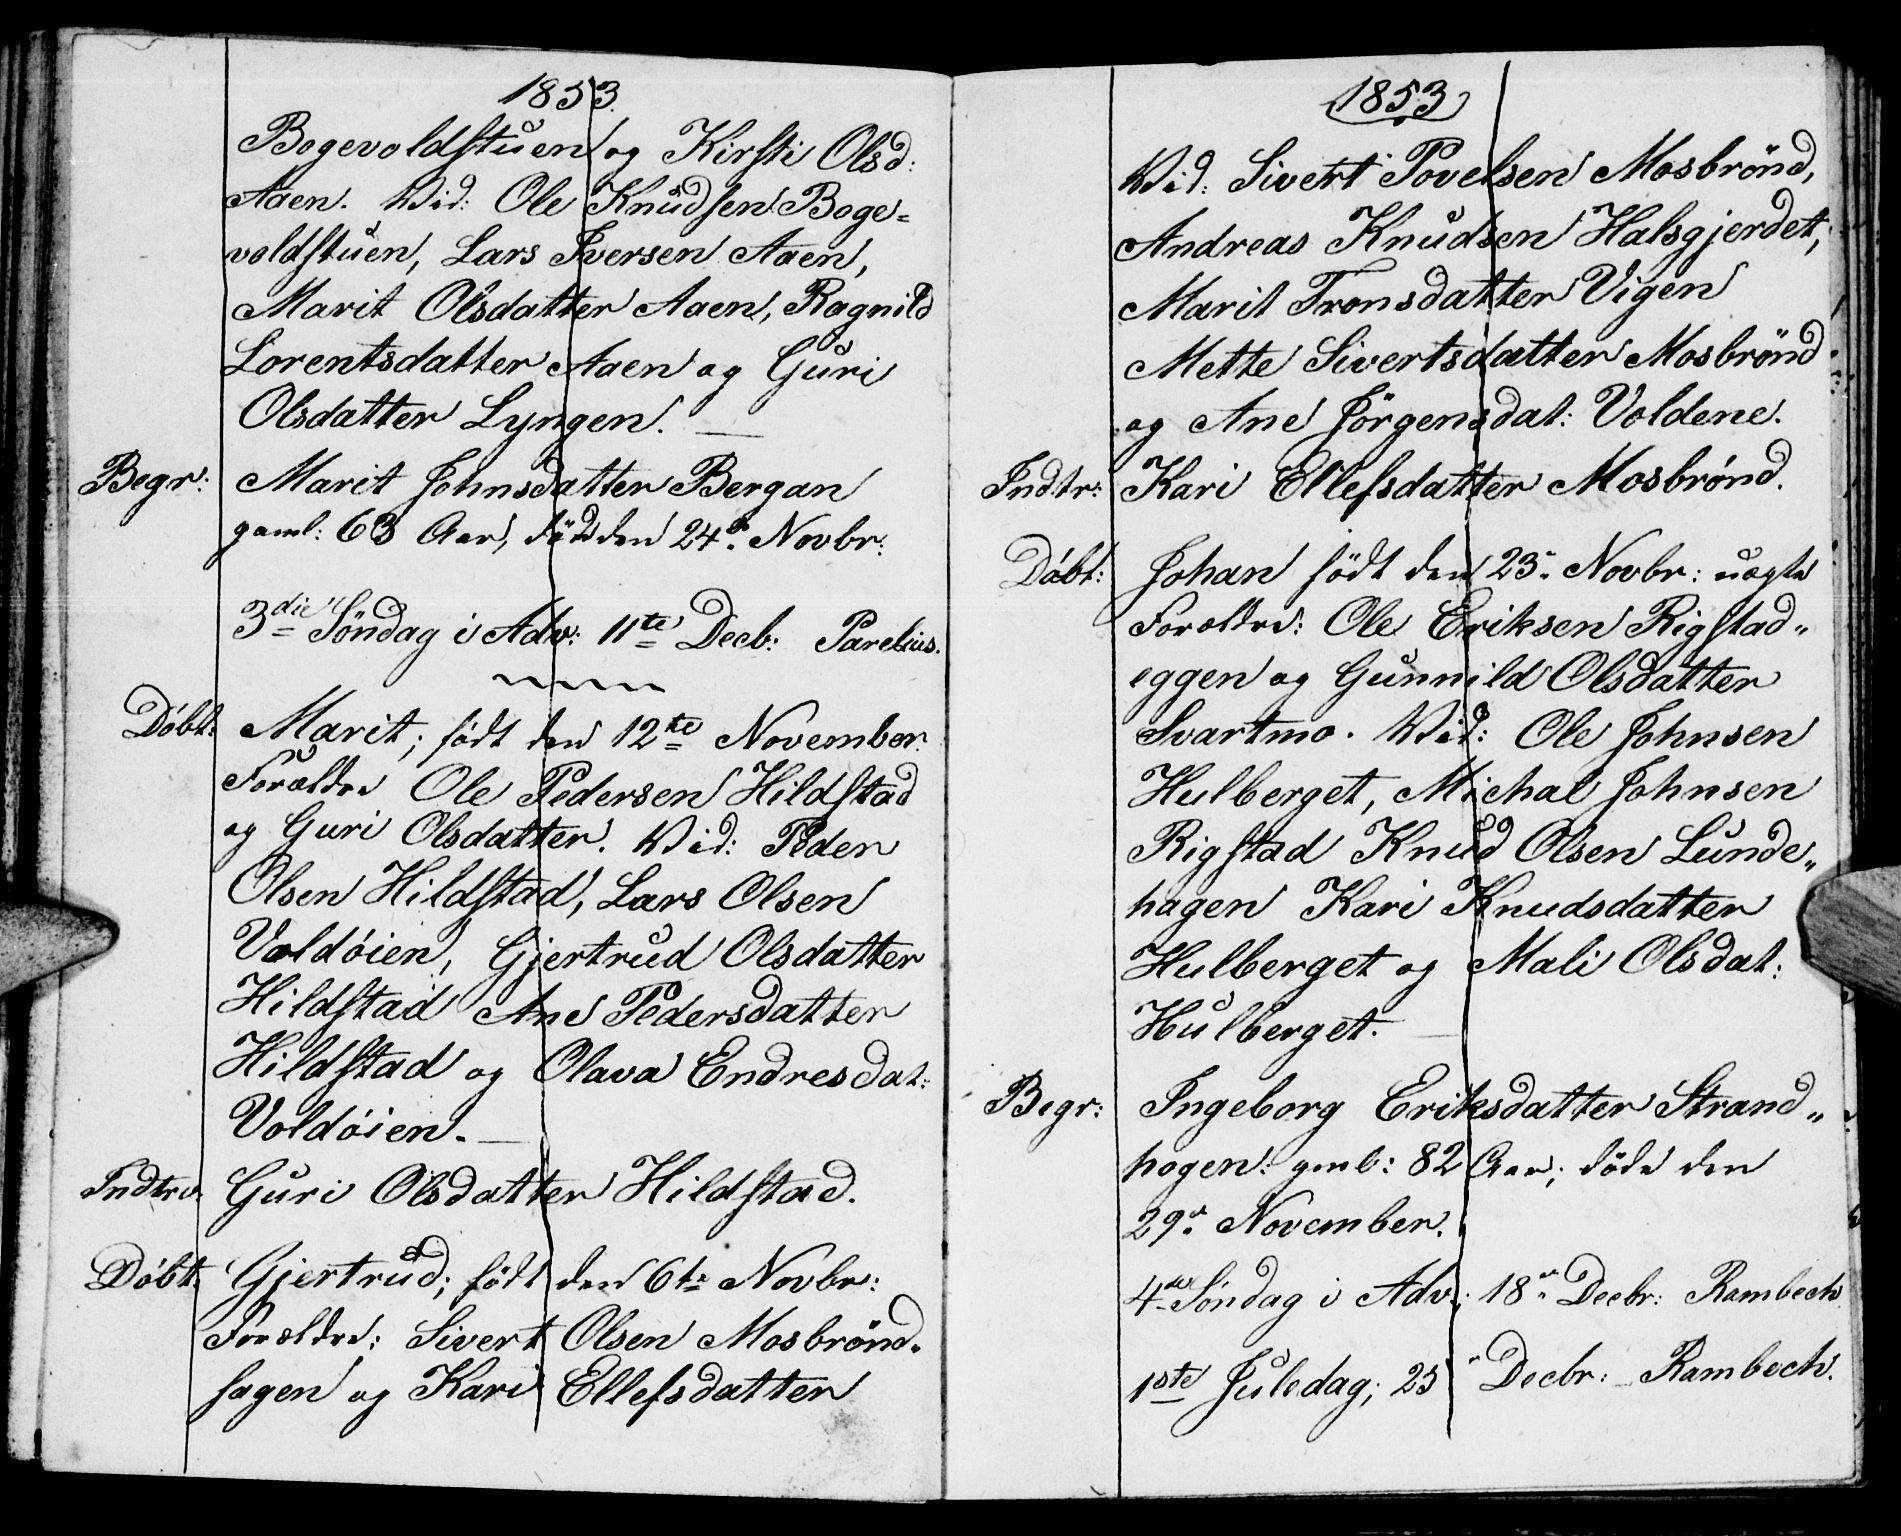 1853.
Bogevoldstuen og Kirsti Olsd:
Aaen. Vid: Ole Knudsen Boge=
voldstuen, Lars Iversen Aaen,
Marit Olsdatter Aaen, Ragnild
Lorentsdatter Aaen og Guri
Olsdatter Lyngen. —
Begr: Marit Johnsdatter Bergan
gaml: 63 Aar, död den 24de Novbr:
3die Söndag i Adv: 11te Decb: Parelius.
Döbt: Marit; födt den 12te November
Forældre Ole Pedersen Hildstad
og Guri Olsdatter. Vid: Peder
Olsen Hildstad, Lars Olsen
Voldöien, Gjertrud Olsdatter
Hildstad Ane Pedersdatter
Hildstad og Olava Endresdat:
Voldöien. —
Indtr: Guri Olsdatter Hildstad.
Döbt: Gjertrud; födt den 6te Novbr:
Forældre: Sivert Olsen Mosbrönd„
hagen og Kari Ellefsdatter
1853
Vid: Sivert Povelsen Mosbrönd,
Andreas Knudsen Halsgjerdet,
Marit Tronsdatter Vigen
Mette Sivertsdatter Mosbrönd
og Ane Jörgensdat: Voldene.
Indtr: Kari Ellefsdatter Mosbrönd.
Döbt: Johan födt den 23de Novbr: uægte
Forældre: Ole Eriksen Rigstad„
eggen og Gunnild Olsdatter
Svartmo. Vid: Ole Johnsen
Hulberget, Michal Johnsen
Rigstad Knud Olsen Lunde„
hagen Kari Knudsdatter
Hulberget og Mali Olsdat:
Hulberget. —
Begr: Ingeborg Eriksdatter Strand„
hagen: gml: 82 Aar; döde den
29de November.
4de Söndag i Adv: 18de Decbr: Rambech
1ste Juledag; 25 Decbr: Rambech.